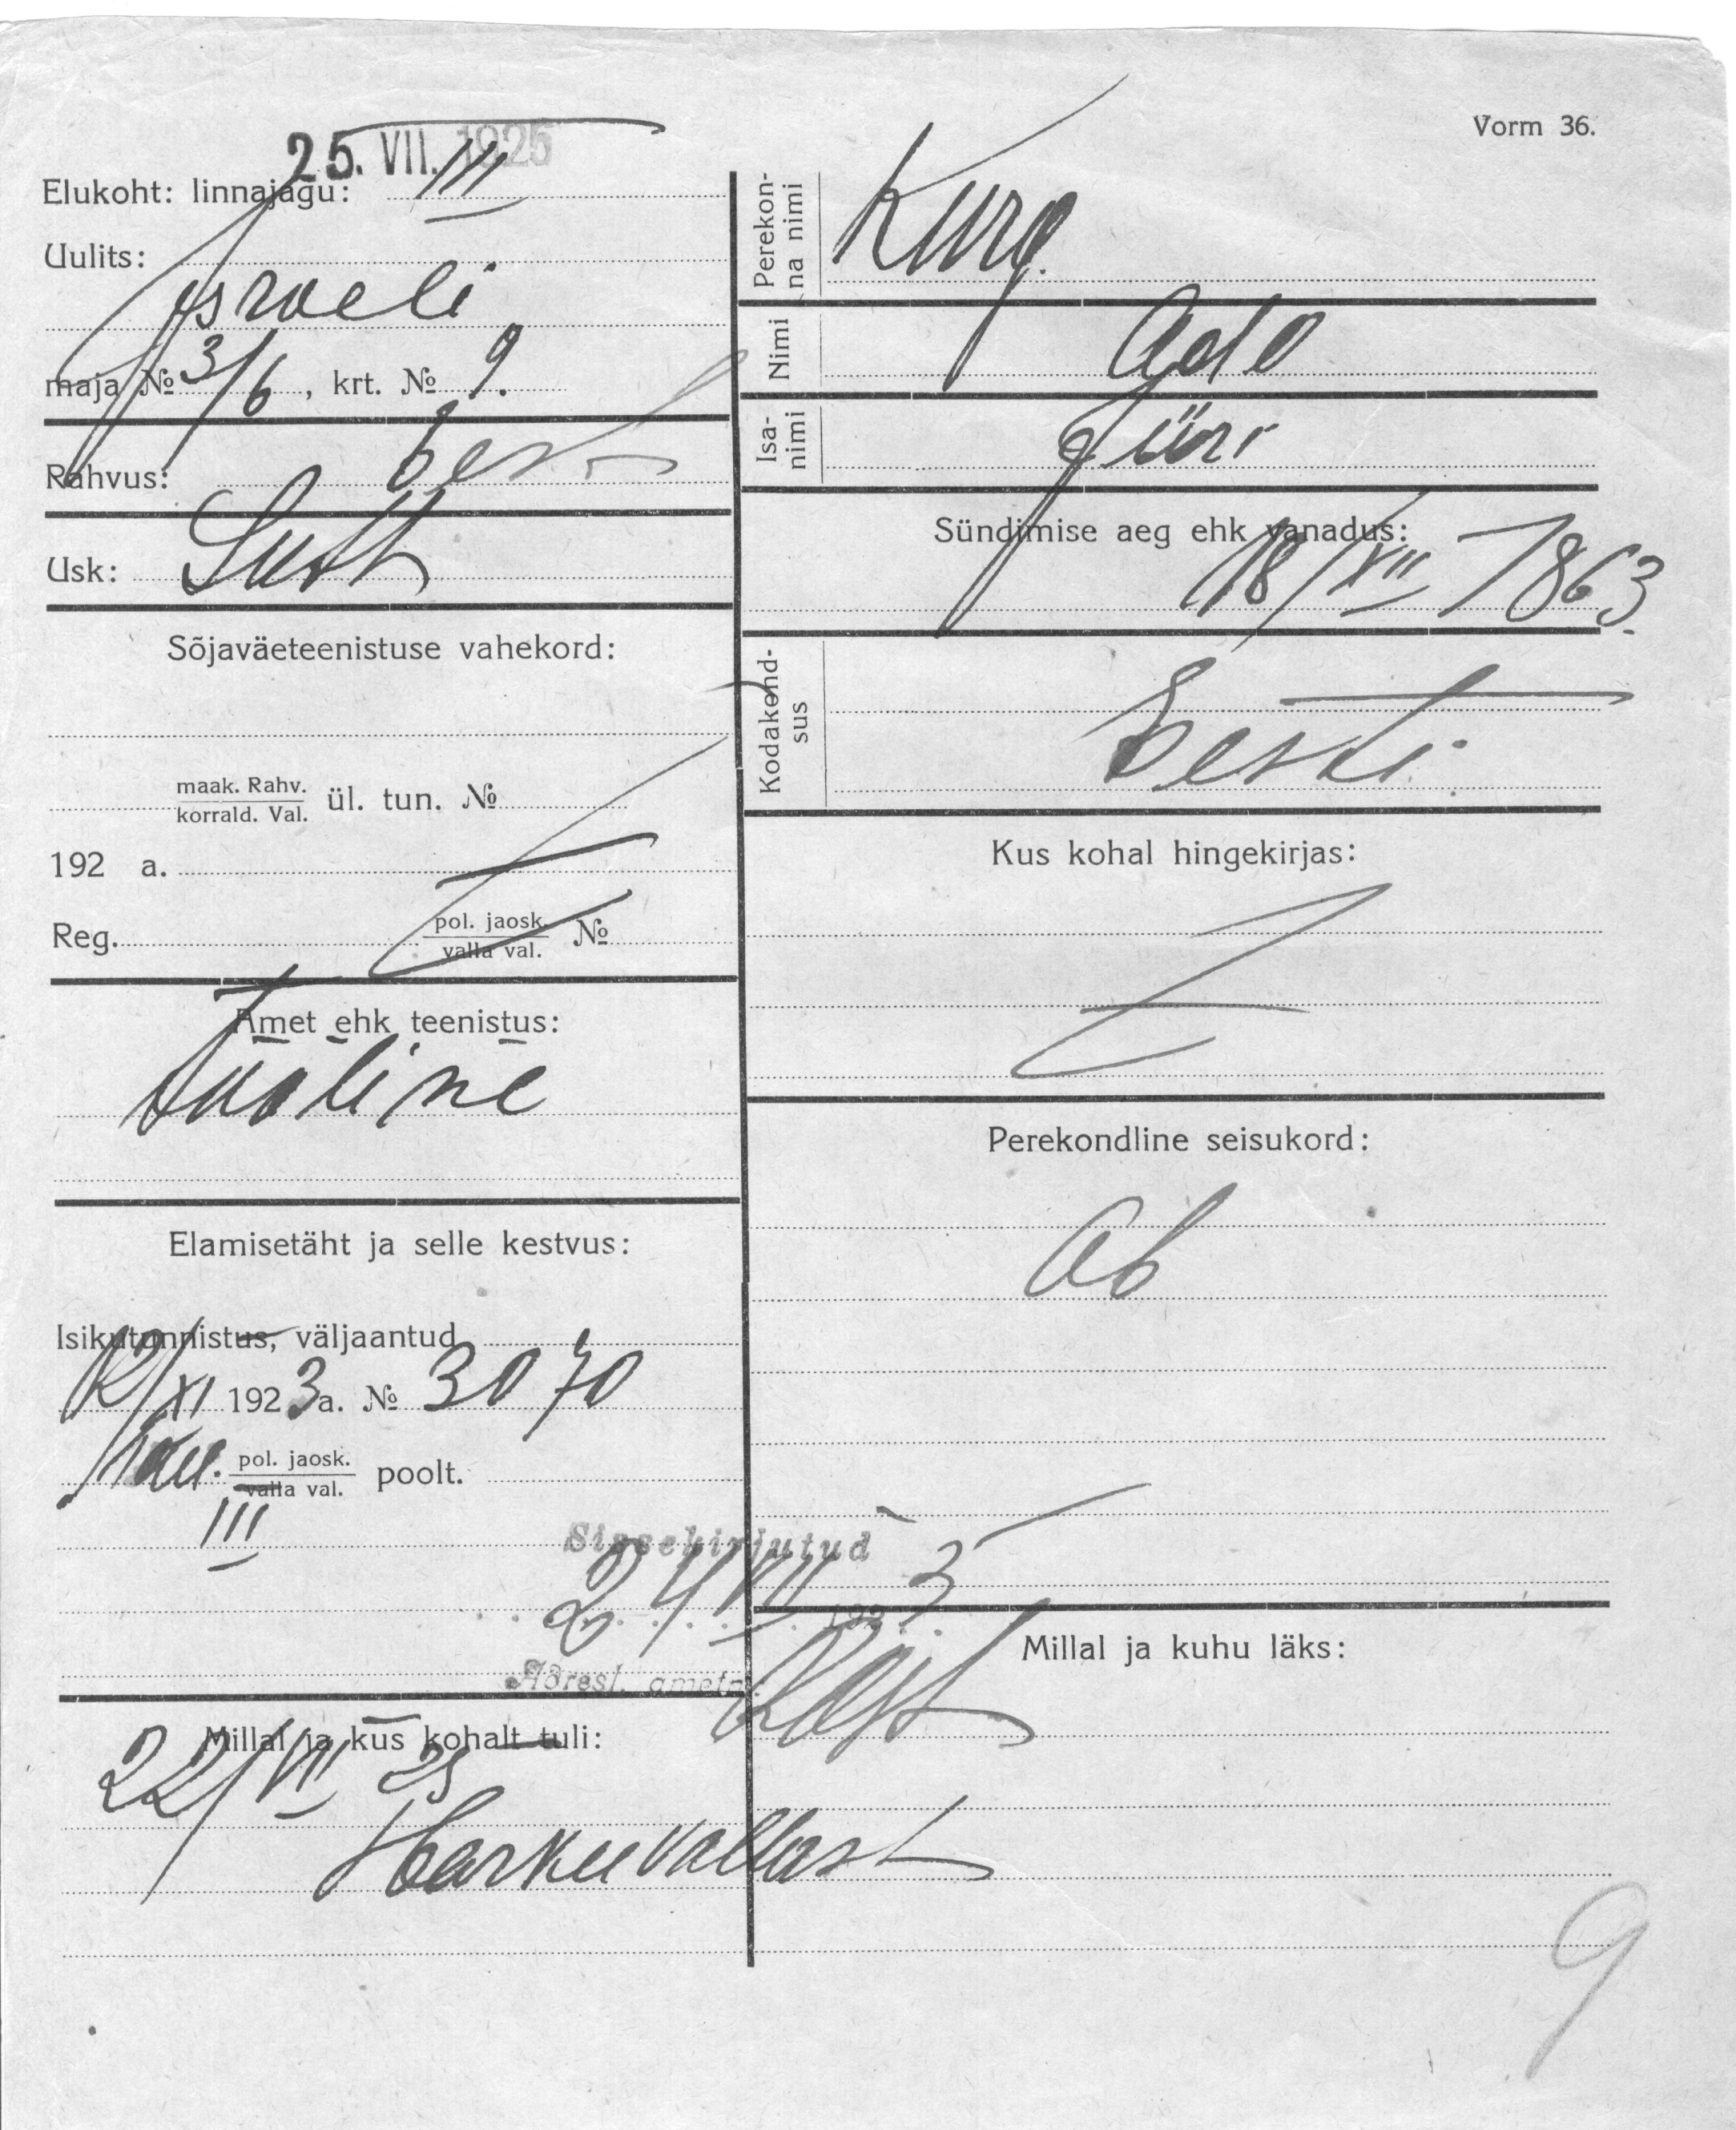 Vorm 36.
25. VII. 1925
Elukoht: linnajagu: III
Uulits:
Israeli
maja № 3/6, krt. № 9.
Rahvus: Eest
Usk: Luth
Sõjaväeteenistuse vahekord:
maak. Rahv.
korrald. Val. ül. tun. №
192 a.
Reg. pol. jaosk.
valla val. №
Amet ehk teenistus:
tööline
Elamisetäht ja selle kestvus:
Isikutunnistus, väljaantud
12/XI 1923 a. № 3070
pol. jaosk.
valla val. poolt.
III
Sissekirjutud
24 VII 1925
Adresl. ametn.
Millal ja kus kohalt tuli:
22/VII 25
Harku vallast
Perekonna nimi
Kurg.
Nimi
Ado
Isanimi
Jüri
Sündimise aeg ehk vanadus:
18/XII 1863.
Kodakondsus
Eesti
Kus kohal hingekirjas:
Perekondline seisukord:
Ab
Millal ja kuhu läks:
9